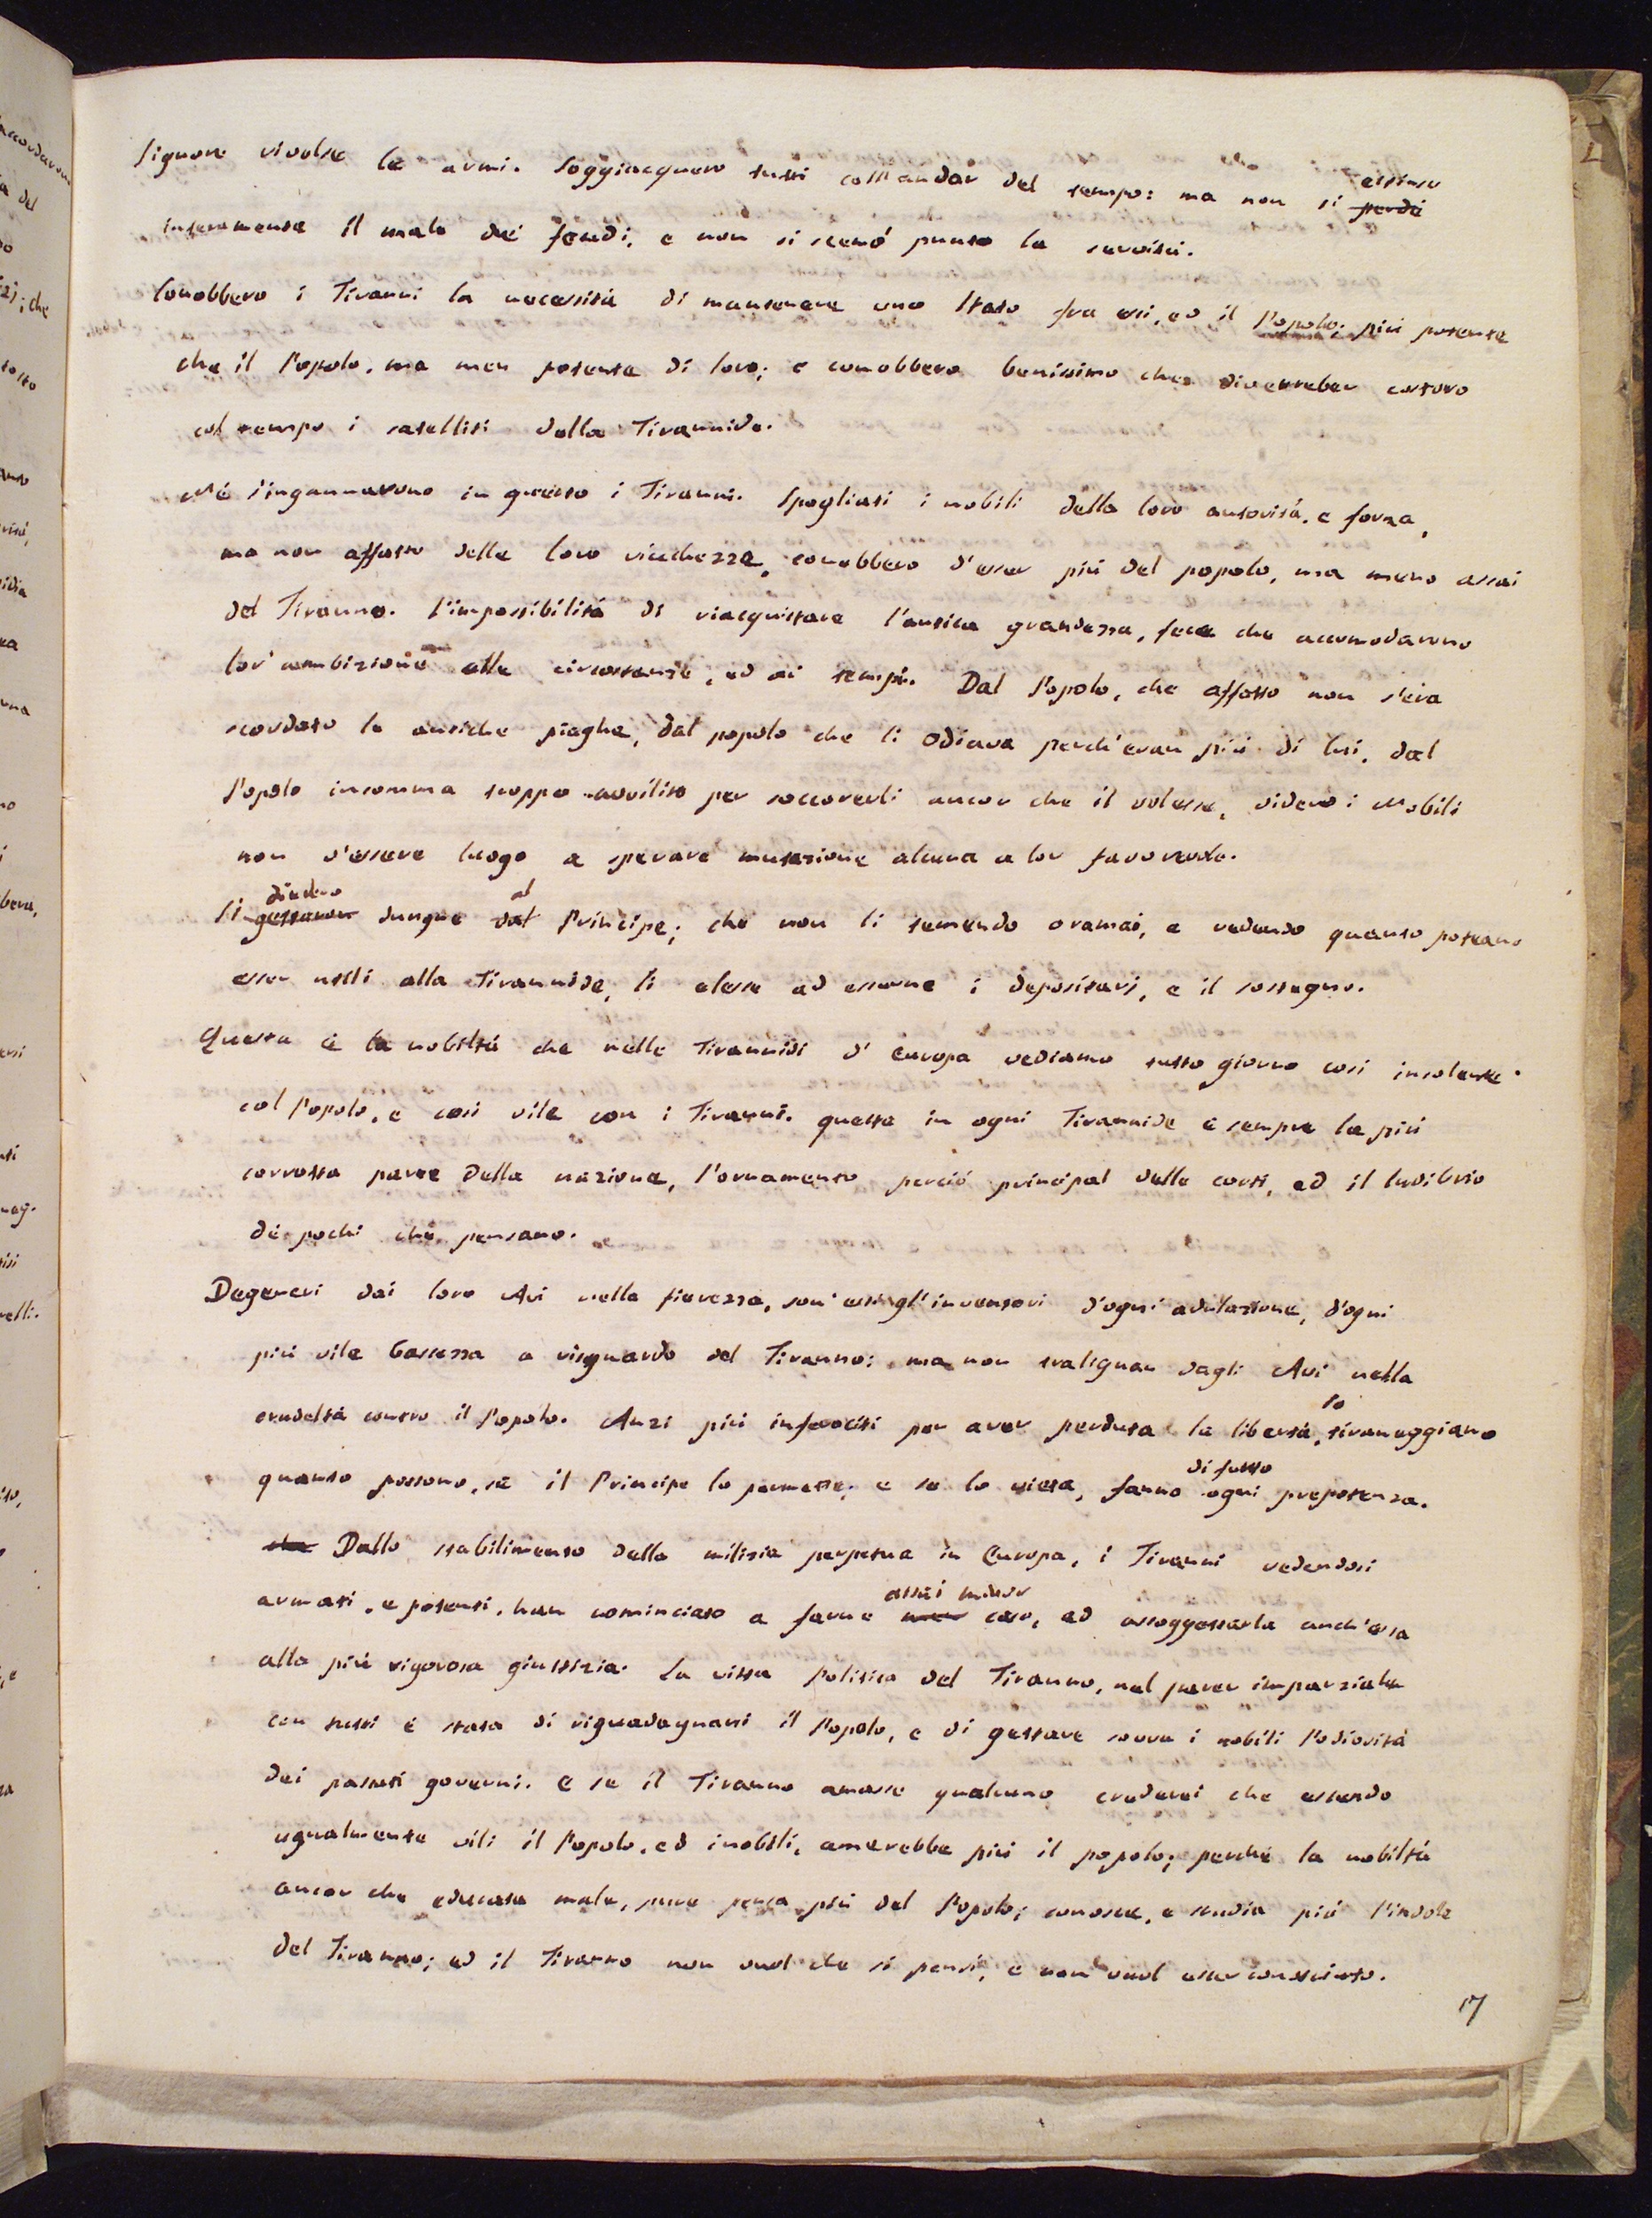 Signore rivolse le armi. Soggiacquero tutti coll'andar del tempo: ma non si estinse perdè
interamente il male dei feudi, e non si scemò punto la servitù.
Conobbero i Tiranni la necessità di mantenere uno Stato fra essi, ed il Popolo; più potente
che il Popolo, ma men potente di loro; e conobbero benissimo che diverrebber costoro
col tempo i satelliti della Tirannide.
Nè s'ingannarono in questo i Tiranni. Spogliati i nobili della loro autorità, e forza,
ma non affatto delle loro ricchezze, conobbero d'esser più del popolo, ma meno assai
del Tiranno. L'impossibilità di riacquistare l'antica grandezza, fece che accomodarono
lor' ambizione alle circostanze, ed ai tempi. Dal Popolo, che affatto non s'era
scordato le antiche piaghe, dal popolo che li odiava perch'eran più di lui, dal
Popolo insomma troppo avvilito per soccorerli ancor che il volesse, videro i Nobili
non v'essere luogo a sperare mutazione alcuna a lor favorevole.
Si diedero gettaron dunque al dal Principe; che non li temendo oramai, e vedendo quanto poteano
esser utili alla Tirannide, li elesse ad esserne i depositarj, e il sostegno.
Questa è la nobiltà che nelle Tirannidi d'Europa vediamo tutto giorno così insolente
col Popolo, e così vile con i Tiranni. questa in ogni Tirannide è sempre la più
corrotta parte della nazione, l'ornamento perciò principal delle corti, ed il ludibrio
dè pochi che pensano.
Degeneri dai loro Avi nella fierezza, son' essi gl'inventori d'ogni adulazione, d'ogni
più vile bassezza a risguardo del Tiranno; ma non tralignan dagli Avi nella
crudeltà contro il Popolo. Anzi più inferociti per aver perduta la libertà, lo tiraneggiano
quanto possono, se il Principe lo permette; e se lo vieta, fanno di furto ogni prepotenza.
che Dallo stabilimento della milizia perpetua in Europa, i Tiranni vedendosi
armati, e potenti, han cominciato a farne assai minor men caso, ed assoggettarla anch'essa
alla più rigorosa giustizia. La vista politica del Tiranno, nel parer imparziale
con tutti è stata di riguadagnarsi il Popolo, e di gettare sovra i nobili l'odiosità
dei passati governi. e se il Tiranno amasse qualcuno crederei che essendo
ugualmente vili il Popolo, ed i nobili, amerebbe più il popolo; perchè la nobiltà
ancor che educata male, pure pensa più del Popolo; conosce, e studia più l'indole
del Tiranno; ed il Tiranno non vuol che si pensi, e non vuol esser conosciuto.
17